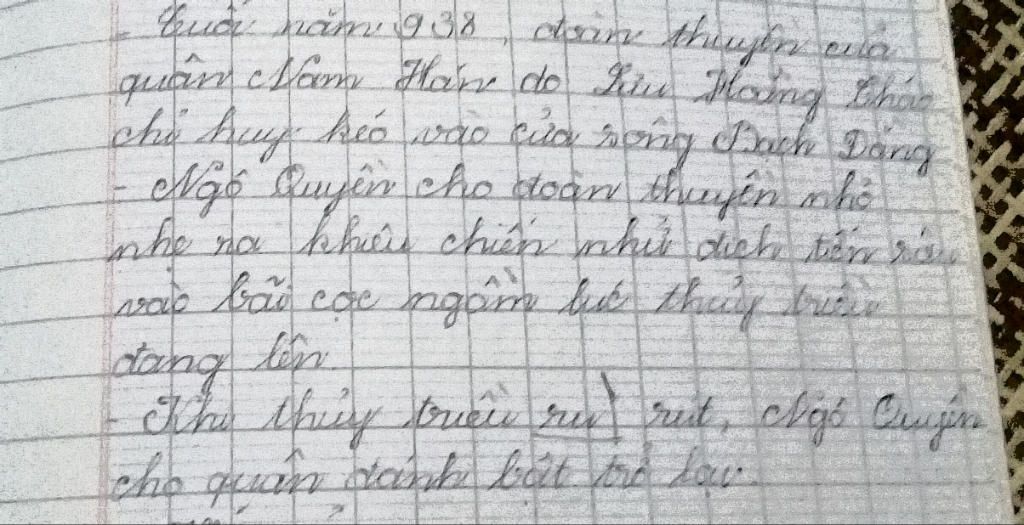 - Cuối năm 938, đoàn thuyền của
quân Nam Hán do Lưu Hoằng Tháo
chỉ huy kéo vào cửa sông Bạch Đằng
- Ngô Quyền cho đoàn thuyền nhỏ
nhẹ ra khiêu chiến nhử địch tiến sâu
vào bãi cọc ngầm lúc thủy triều
đang lên.
- Khi thủy triều rút, Ngô Quyền
cho quân đánh bật trở lại.